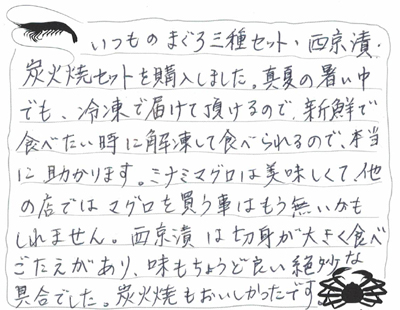 いつものまぐろ三種セット・西京漬・
炭火焼セットを購入しました。真夏の暑い中
でも、冷凍で届けて頂けるので、新鮮で
食べたい時に解凍して食べられるので、本当
に助かります。ミナミマグロは美味しくて、他
の店ではマグロを買う事はもう無いかも
しれません。西京漬は切身が大きく食べ
ごたえがあり、味もちょうど良い絶妙な
具合でした。炭火焼もおいしかったです。